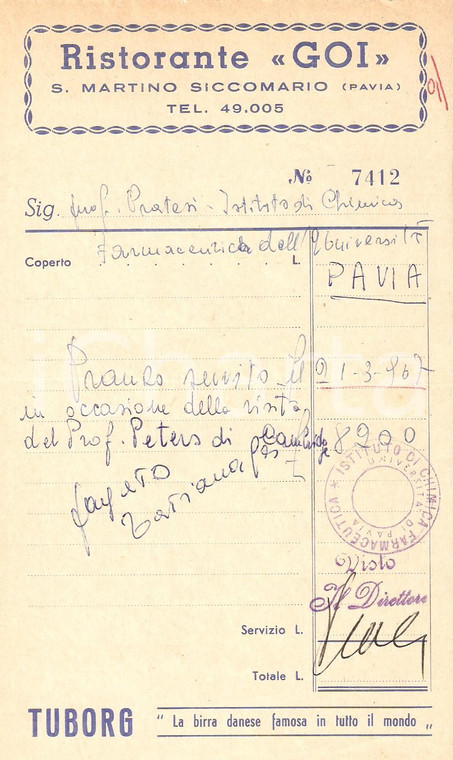 Ristorante «GOI»
S. MARTINO SICCOMARIO (PAVIA)
TEL. 49.005
№ 7412
Sig. prof. Pratesi - Istituto di Chimica
Farmaceutica dell'Università
Coperto L.
PAVIA
Pranzo servito il 21-3-967
in occasione della visita
del Prof. Peters di Cambridge 8900
pagato
ISTITUTO DI CHIMICA FARMACEUTICA
UNIVERSITÀ DI PAVIA
Visto
Il Direttore
Servizio L.
Totale L.
TUBORG " La birra danese famosa in tutto il mondo „